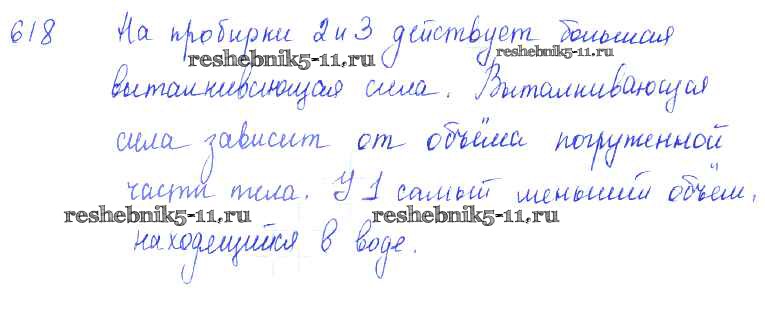 618 На пробирки 2 и 3 действует большая
reshebnik5-11.ru reshebnik5-11.ru
выталкивающая сила. Выталкивающая
сила зависит от объёма погруженной
части тела. У 1 самый меньший объём,
reshebnik5-11.ru reshebnik5-11.ru
находящийся в воде.